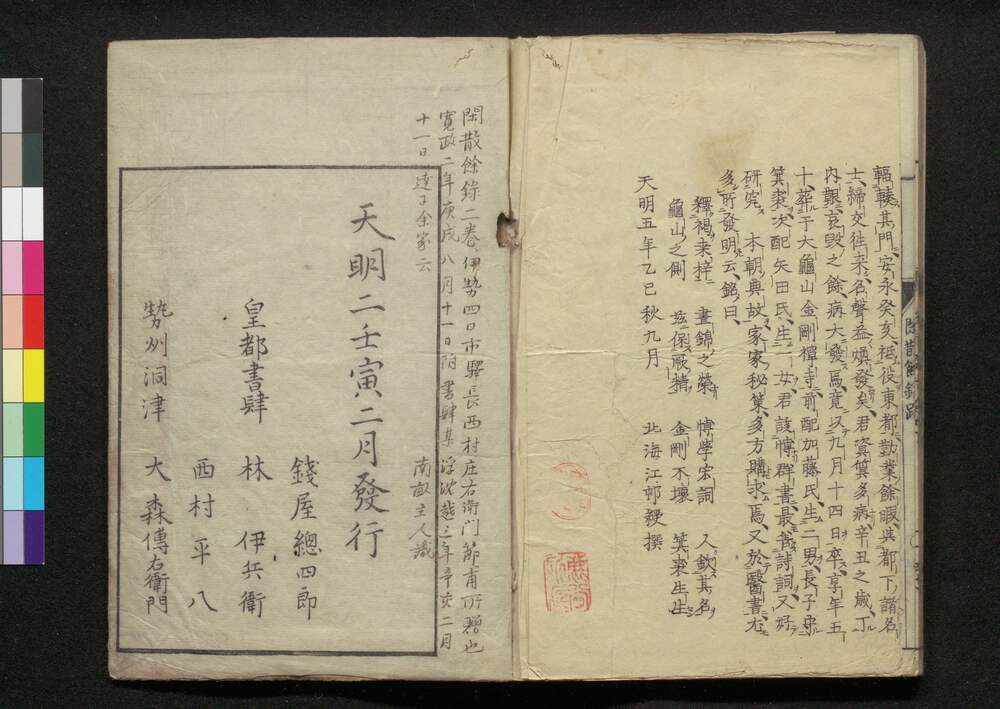 輻輳其門、安永癸亥、祗役東都、勤業餘暇、與都下諸名
士、締交往来、名聲益煥發矣、君資質多病、辛丑之歳、丁
内艱、哀毀之餘、病大發焉、竟以九月十四日卒、享年五
十、葬于大龜山金剛樟寺、前配加藤氏、生二男、長子承
箕裘、次配矢田氏、生一女、君該博群書、最善詩詞、又好
研究 本朝典故、家家秘笈、多方購求焉、又於醫書、尤
多所發明云、銘曰、
釋褐桒梓 晝錦之榮 博學宏詞 人欽其名
龜山之側 茲保厥精 金剛不壞 箕裘生生
天明五年乙巳秋九月 北海江邨綬撰
閑散餘録二巻伊勢四日市驛長西村庄右衛門節甫所贈也
寛政二年庚戌八月十一日附書肆某浮沈越三年辛亥二月
十一日達于余家云
南畝主人識
天明二壬寅二月發行
錢屋總四郎
皇都書肆 林 伊兵衛
西村平八
勢州洞津 大森傳右衛門